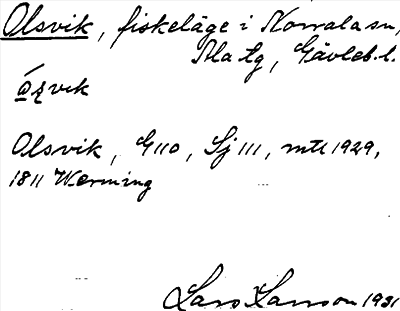 Olsvik, fiskeläge i Norrala sn,
Ala tg, Gävleb. l.
Olsvik, G 110, Sj 111, mtl 1929,
1811 Werming
Lars Larsson 1931